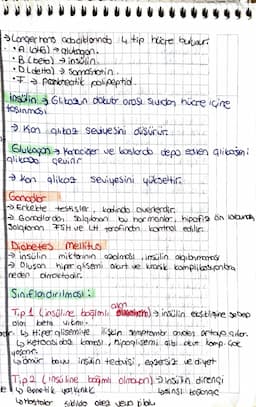 → Langerhans adacıklarında 4 tip hücre bulunur.
• A (alfa) → glukagon.
• B (beta) → insülin.
• D (delta) → somatostatin
• F → pankreatik polipeptid.
İnsülin → Glikozun doku arası sıvıdan hücre içine
taşınması
→ Kan glikoz seviyesini düşürür.
Glukagon → Karaciğer ve kaslarda depo edilen glikojeni
glikoza çevirir
→ Kan glikoz seviyesini yükseltir.
Gonadlar
→ Erkekte testisler, kadında overlerdir.
→ Gonadlardan salgılanan bu hormonlar, hipofiz ön lobundan
salgılanan FSH ve LH tarafından kontrol edilir.
Diabetes Mellitus
→ insülin miktarının azalması, insülin
→ Oluşan hiperglisemi akut ve kronik komplikasyonlara
neden olmaktadır.
Sınıflandırılması:
Tip 1 (insüline bağımlı olan) → insülin eksikliğine sebep
olan beta
↳ Hiperglisemiye ilişkin semptomlar aniden ortaya çıkar.
↳ Ketoasidoz koması, hipoglisemi gibi akut komp. çok
yaşanır.
↳ ömür boyu insülin tedavisi, egzersiz ve diyet
Tip 2 (insüline bağımlı olmayan) → insülin direnci
↳ Genetik yatkınlık
↳ Hastalar sıklıkla obez veya